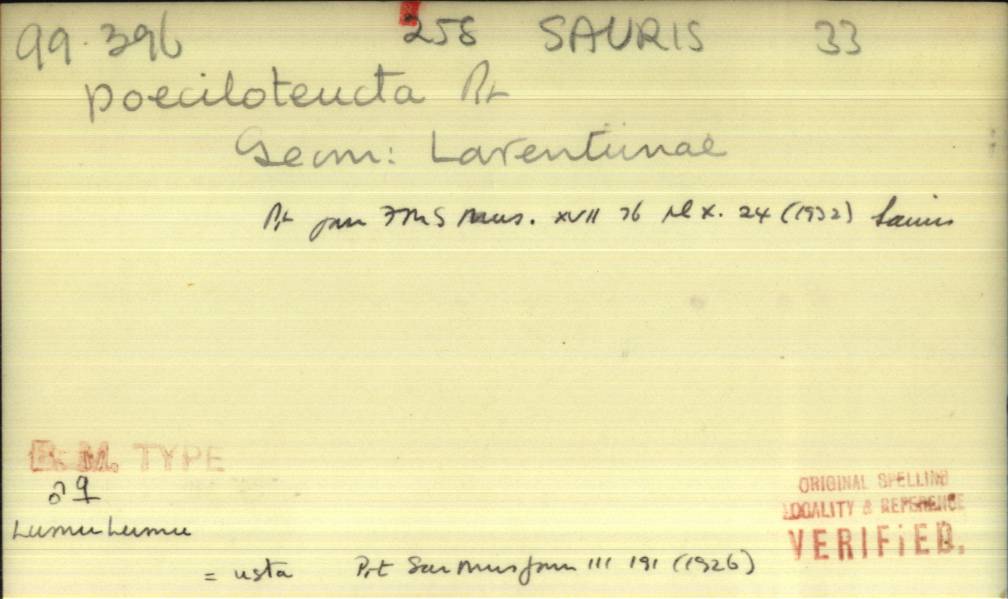 99.396 258 SAURIS 33
poeciloteucta Prt
Geom: Larentiinae
Prt Jour FMS Mus. XVII 76 Pl X. 24 (1932) Sauris
B. M. TYPE
♂ ♀
Lumu Lumu
ORIGINAL SPELLING
LOCALITY & REFERENCE
VERIFIED.
= usta Prt Sar Mus Journ III 191 (1926)